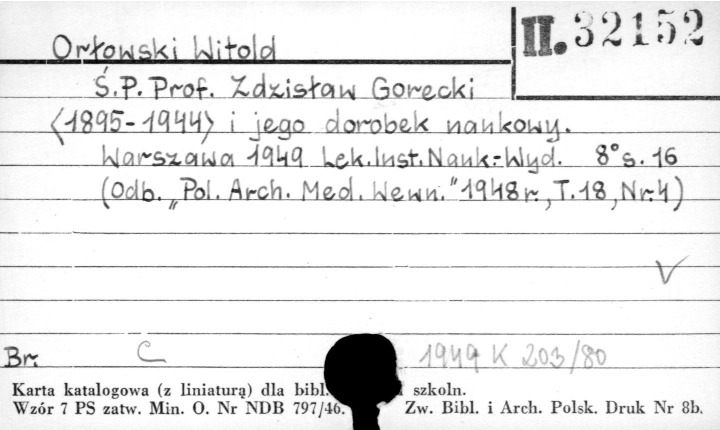 Orłowski Witold
II. 32152
Ś.P. Prof. Zdzisław Gorecki
⟨1895-1944⟩ i jego dorobek naukowy.
Warszawa 1949 Lek.Inst.Nauk.-Wyd. 8° s. 16
(Odb. „Pol. Arch. Med. Wewn." 1948 r., T. 18, Nr. 4)
V
Br. C 1949 K 203/80
Karta katalogowa (z liniaturą) dla bibl. szkoln.
Wzór 7 PS zatw. Min. O. Nr NDB 797/46. Zw. Bibl. i Arch. Polsk. Druk Nr 8b.